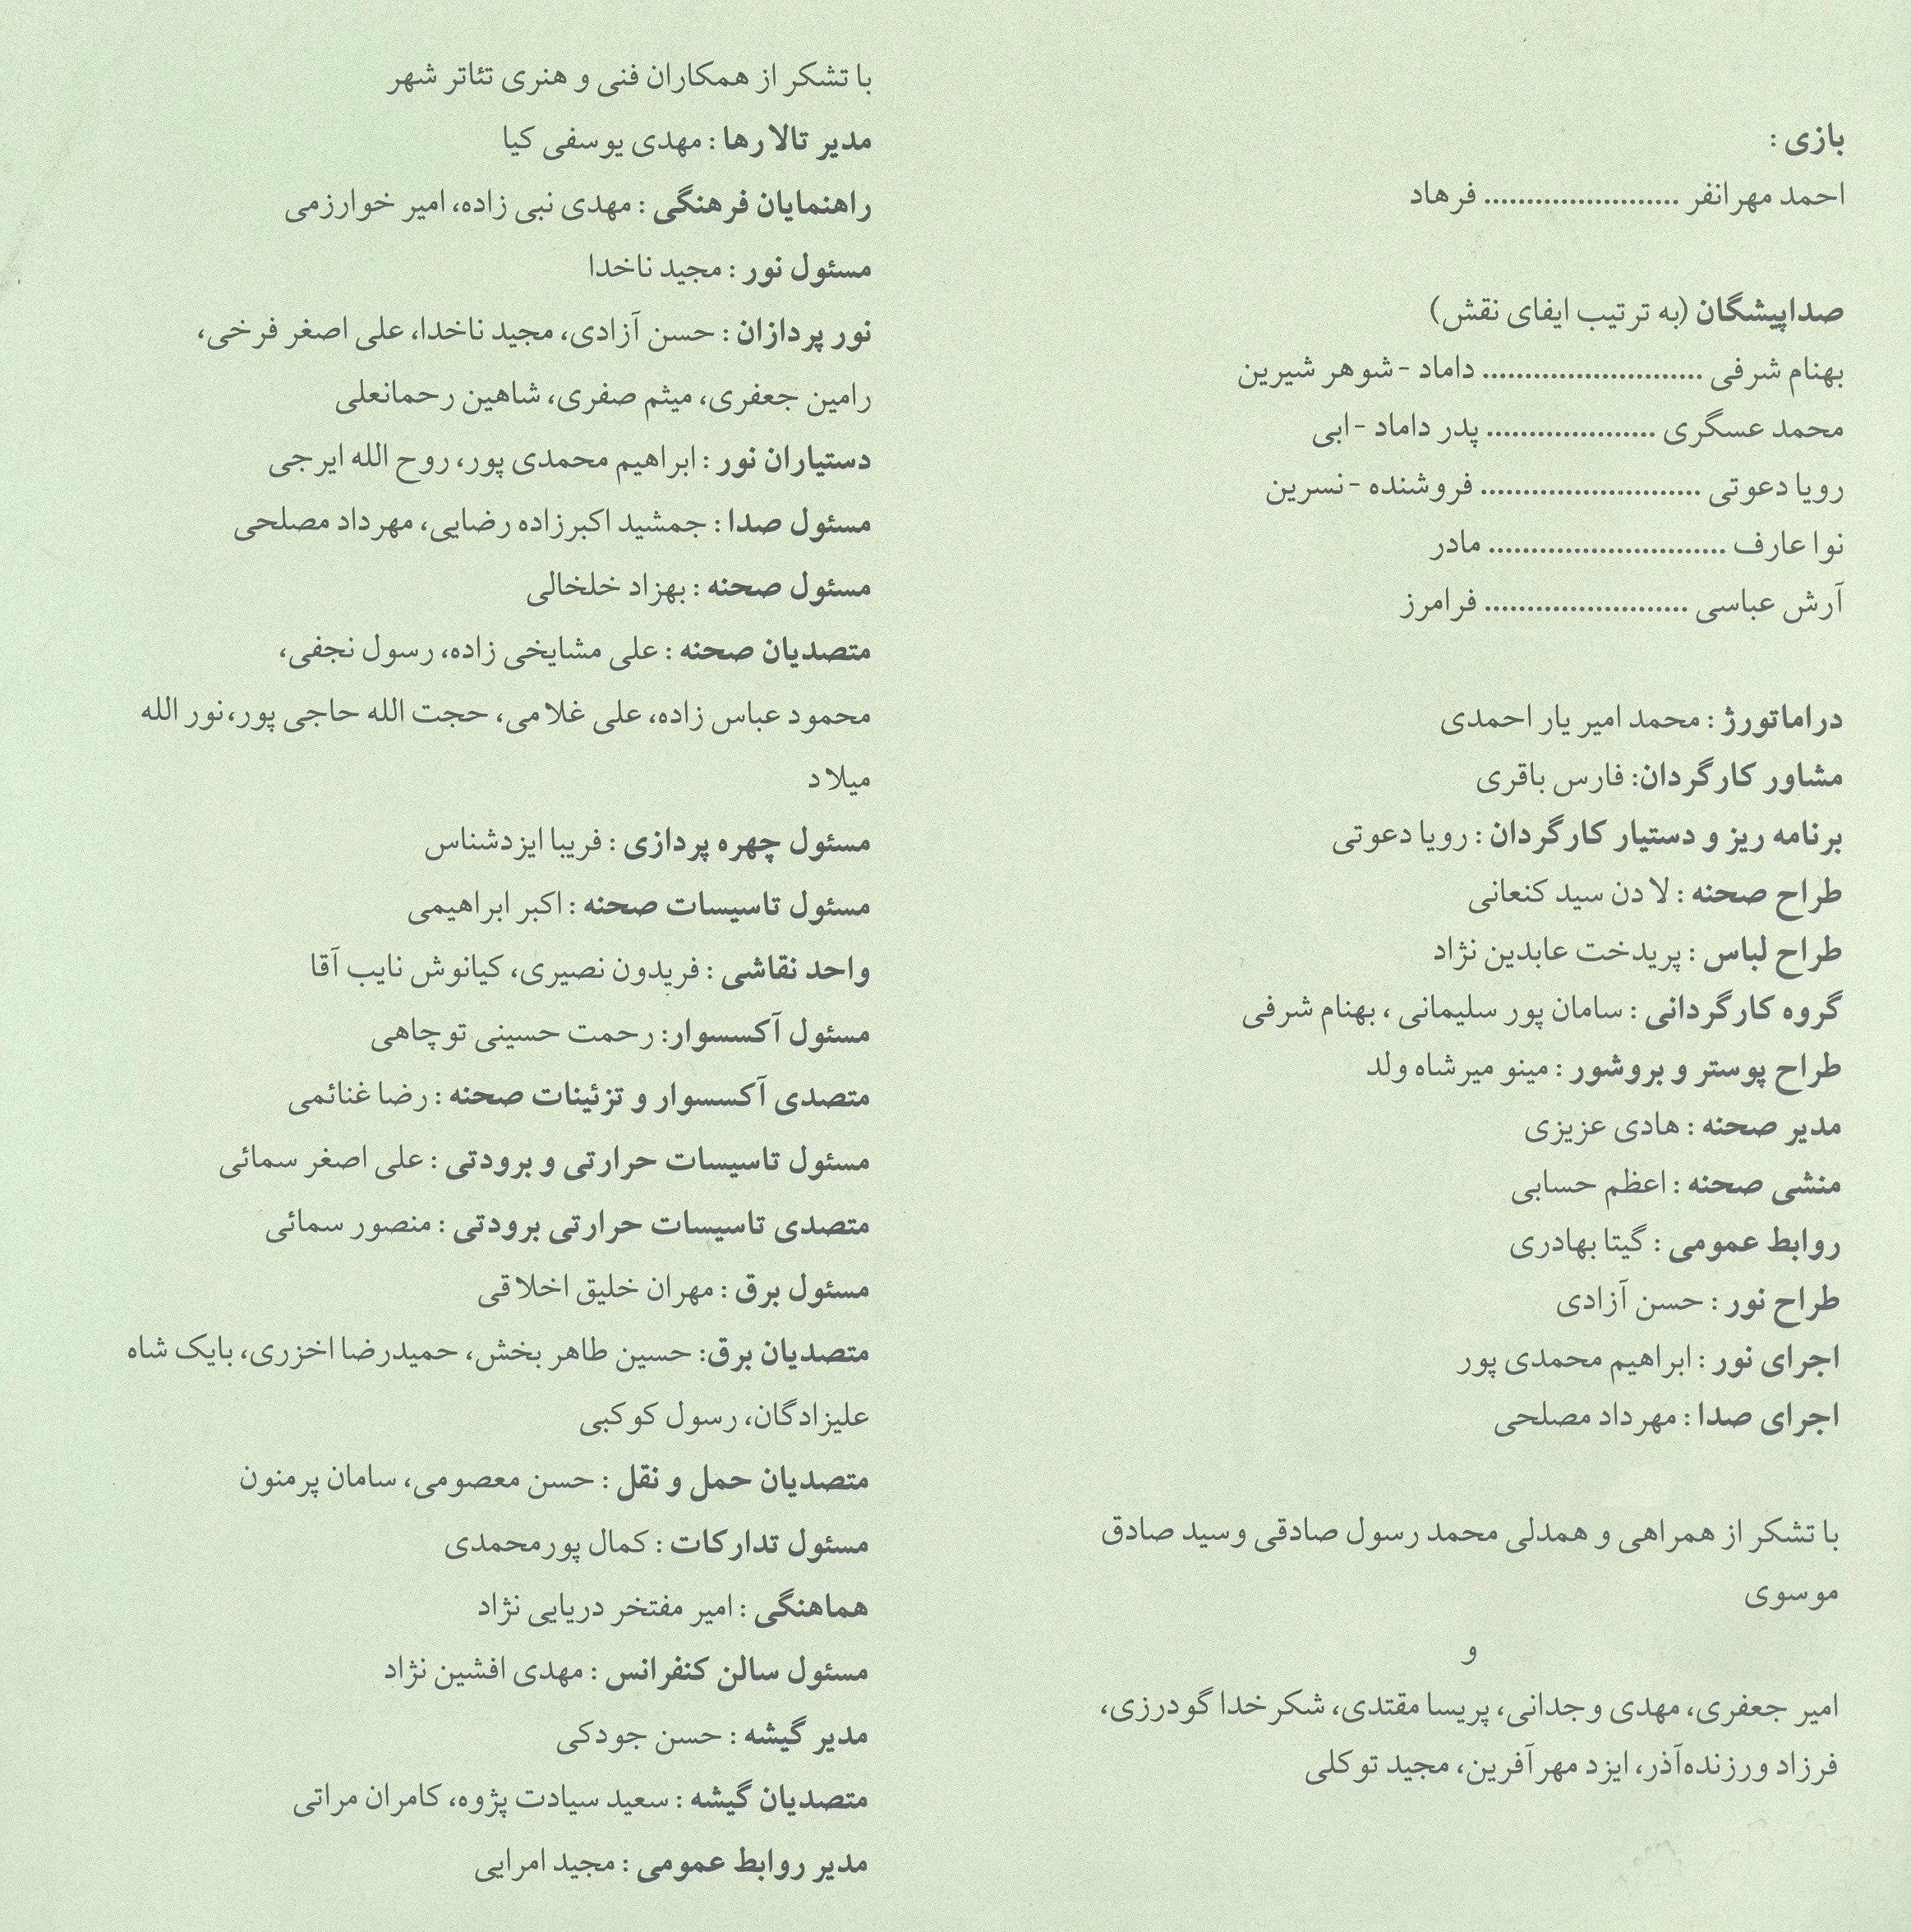 بازی :
احمد مهرانفر ....................... فرهاد
صداپیشگان (به ترتیب ایفای نقش)
بهنام شرفی .......................... داماد - شوهر شیرین
محمد عسگری .................... پدر داماد - ابی
رویا دعوتی .......................... فروشنده - نسرین
نوا عارف ............................ مادر
آرش عباسی ........................ فرامرز
دراماتورژ : محمد امیر یار احمدی
مشاور کارگردان: فارس باقری
برنامه ریز و دستیار کارگردان : رویا دعوتی
طراح صحنه : لادن سید کنعانی
طراح لباس : پریدخت عابدین نژاد
گروه کارگردانی : سامان پور سلیمانی ، بهنام شرفی
طراح پوستر و بروشور : مینو میرشاه ولد
مدیر صحنه : هادی عزیزی
منشی صحنه : اعظم حسابی
روابط عمومی : گیتا بهادری
طراح نور : حسن آزادی
اجرای نور : ابراهیم محمدی پور
اجرای صدا : مهرداد مصلحی
با تشکر از همراهی و همدلی محمد رسول صادقی وسید صادق
موسوی
و
امیر جعفری، مهدی وجدانی، پریسا مقتدی، شکرخدا گودرزی،
فرزاد ورزنده‌آذر، ایزد مهرآفرین، مجید توکلی
با تشکر از همکاران فنی و هنری تئاتر شهر
مدیر تالارها : مهدی یوسفی کیا
راهنمایان فرهنگی : مهدی نبی زاده، امیر خوارزمی
مسئول نور : مجید ناخدا
نور پردازان : حسن آزادی، مجید ناخدا، علی اصغر فرخی،
رامین جعفری، میثم صفری، شاهین رحمانعلی
دستیاران نور : ابراهیم محمدی پور، روح الله ایرجی
مسئول صدا : جمشید اکبرزاده رضایی، مهرداد مصلحی
مسئول صحنه : بهزاد خلخالی
متصدیان صحنه : علی مشایخی زاده، رسول نجفی،
محمود عباس زاده، علی غلامی، حجت الله حاجی پور،نور الله
میلاد
مسئول چهره پردازی : فریبا ایزدشناس
مسئول تاسیسات صحنه : اکبر ابراهیمی
واحد نقاشی : فریدون نصیری، کیانوش نایب آقا
مسئول آکسسوار: رحمت حسینی توچاهی
متصدی آکسسوار و تزئینات صحنه : رضا غنائمی
مسئول تاسیسات حرارتی و برودتی : علی اصغر سمائی
متصدی تاسیسات حرارتی برودتی : منصور سمائی
مسئول برق : مهران خلیق اخلاقی
متصدیان برق: حسین طاهر بخش، حمیدرضا اخزری، بابک شاه
علیزادگان، رسول کوکبی
متصدیان حمل و نقل : حسن معصومی، سامان پرمنون
مسئول تدارکات : کمال پورمحمدی
هماهنگی : امیر مفتخر دریایی نژاد
مسئول سالن کنفرانس : مهدی افشین نژاد
مدیر گیشه : حسن جودکی
متصدیان گیشه : سعید سیادت پژوه، کامران مراتی
مدیر روابط عمومی : مجید امرایی